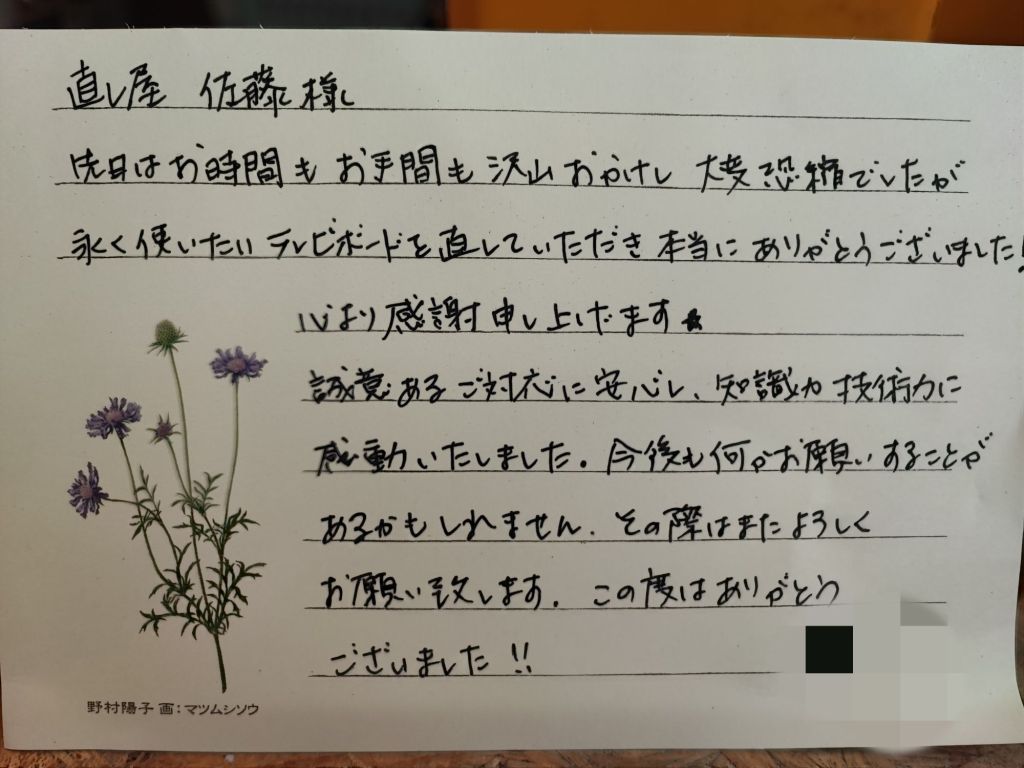 直し屋 佐藤様
先日はお時間もお手間も沢山おかけし 大変恐縮でしたが
永く使いたいテレビボードを直していただき本当にありがとうございました!
心より感謝申し上げます
誠意あるご対応に安心し、知識力 技術力に
感動いたしました。今後も何かお願いすることが
あるかもしれません。その際はまたよろしく
お願い致します。この度はありがとう
ございました!!
野村陽子 画:マツムシソウ